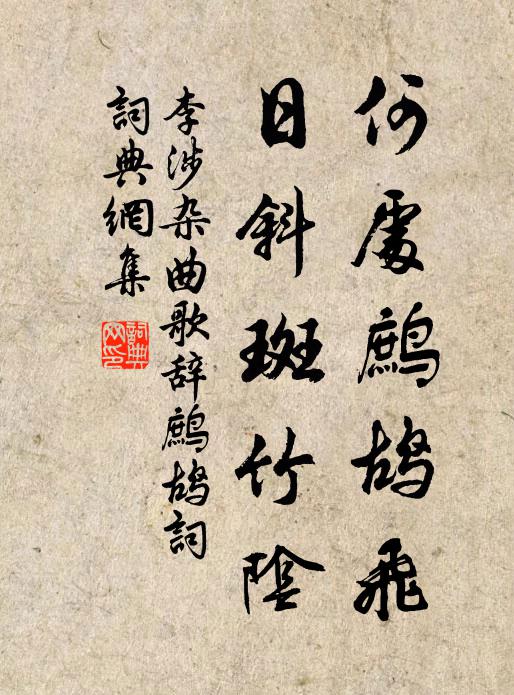 何處鷓鴣飛
日斜斑竹陰
李涉杂曲歌辞鷓鴣詞
詞典網集
詞典網印